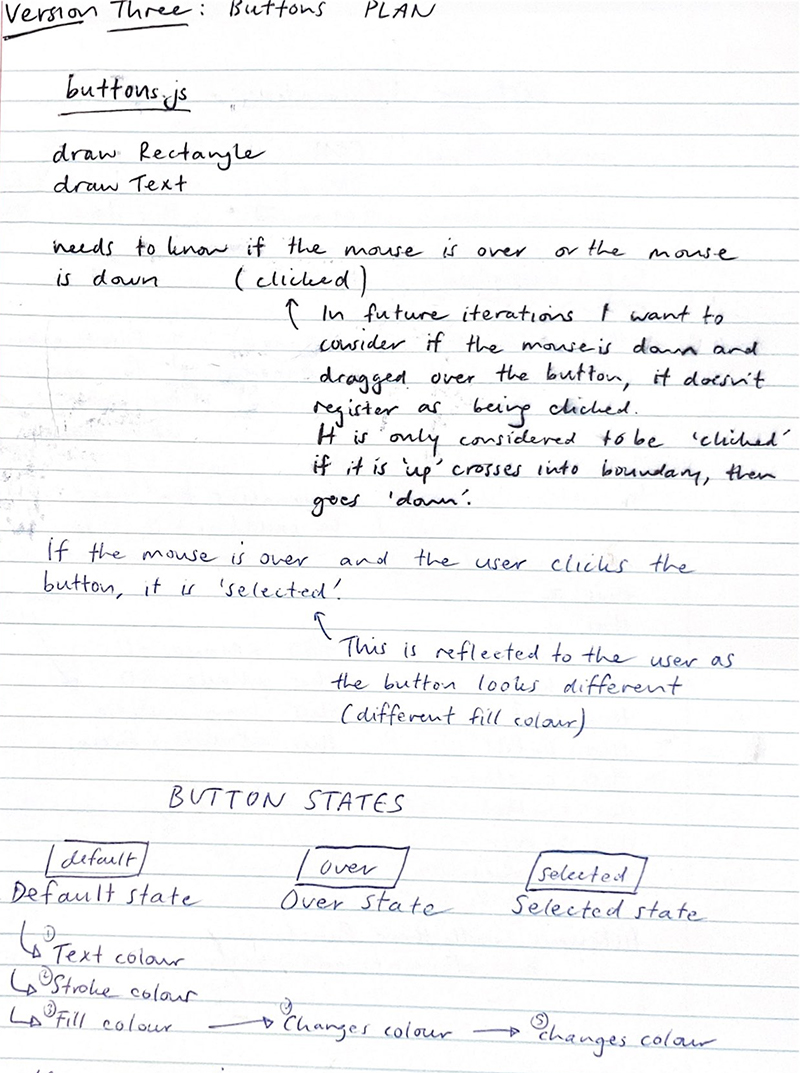 Version Three: Buttons PLAN
buttons.js
draw Rectangle
draw Text
needs to know if the mouse is over or the mouse
is down (clicked)
In future iterations I want to
consider if the mouse is down and
dragged over the button, it doesn't
register as being clicked.
It is only considered to be 'clicked'
if it is 'up' crosses into boundary, then
goes 'down'.
If the mouse is over and the user clicks the
button, it is 'selected'.
This is reflected to the user as
the button looks different
(different fill colour)
BUTTON STATES
default over selected
Default state Over state Selected state
① Text colour
② Stroke colour
③ Fill colour → ④ Changes colour → ⑤ Changes colour